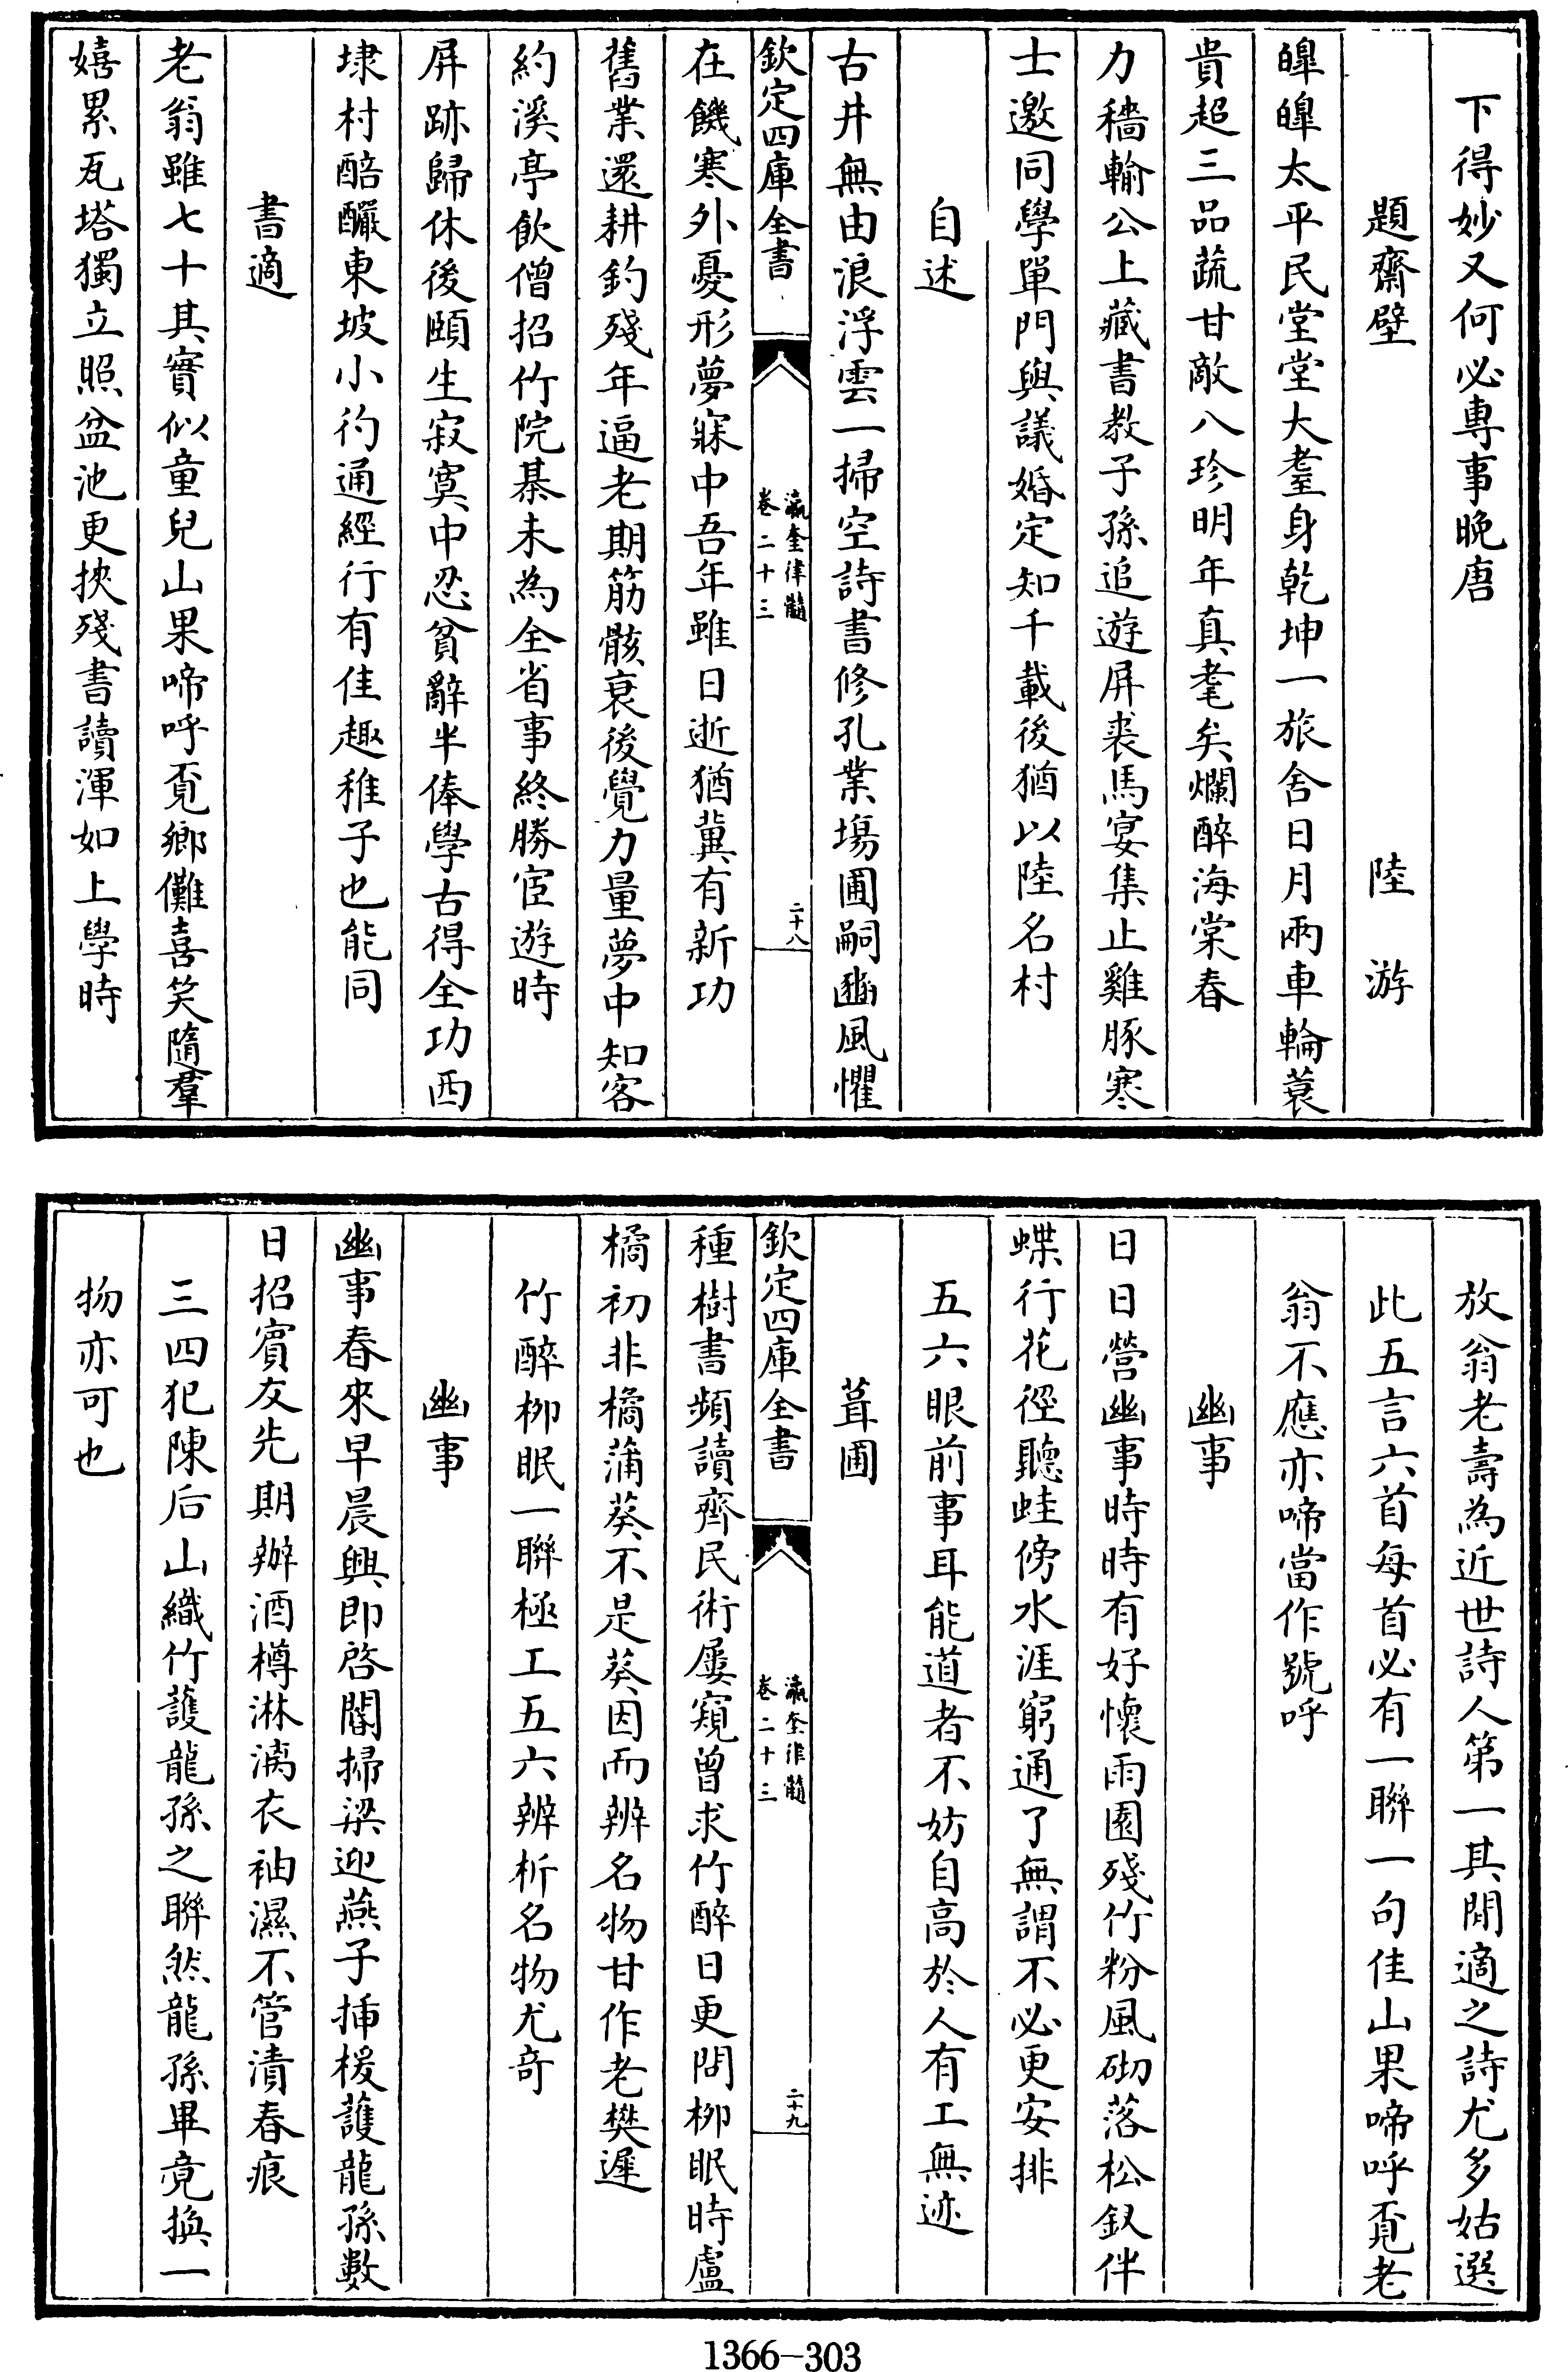 下得妙又何必專事晚唐
題齋壁 陸游
皥皥太平民堂堂大耋身乾坤一旅舍日月兩車輪蓑
貴超三品蔬甘敵八珍明年真耄矣爛醉海棠春
力穡輸公上藏書教子孫追遊屏裘馬宴集止雞豚寒
士邀同學單門與議婚定知千載後猶以陸名村
自述
古井無由浪浮雲一掃空詩書修孔業塲圃嗣豳風懼
欽定四庫全書
瀛奎律髓
卷二十三
二十八
在饑寒外憂形夢寐中吾年雖日逝猶冀有新功
舊業還耕釣殘年逼老期筋骸衰後覺力量夢中知客
約溪亭飲僧招竹院棊未為全省事終勝宦遊時
屏跡歸休後頤生寂寞中忍貧辭半俸學古得全功西
埭村醅釅東坡小彴通經行有佳趣稚子也能同
書適
老翁雖七十其實似童兒山果啼呼覔鄉儺喜笑隨羣
嬉累瓦塔獨立照盆池更挾殘書讀渾如上學時
放翁老壽為近世詩人第一其閒適之詩尤多姑選
此五言六首每首必有一聯一句佳山果啼呼覔老
翁不應亦啼當作號呼
幽事
日日營幽事時時有好懷雨園殘竹粉風砌落松釵伴
蝶行花徑聽蛙傍水涯窮通了無謂不必更安排
五六眼前事耳能道者不妨自高於人有工無迹
葺圃
欽定四庫全書
瀛奎律髓
卷二十三
二十九
種樹書頻讀齊民術屢窺曾求竹醉日更問柳眠時盧
橘初非橘蒲葵不是葵因而辨名物甘作老樊遲
竹醉柳眠一聯極工五六辨析名物尤奇
幽事
幽事春來早晨興即啓閽掃梁迎燕子揷楥護龍孫數
日招賓友先期辦酒樽淋漓衣袖濕不管漬春痕
三四犯陳后山織竹護龍孫之聯然龍孫畢竟換一
物亦可也
1366-303